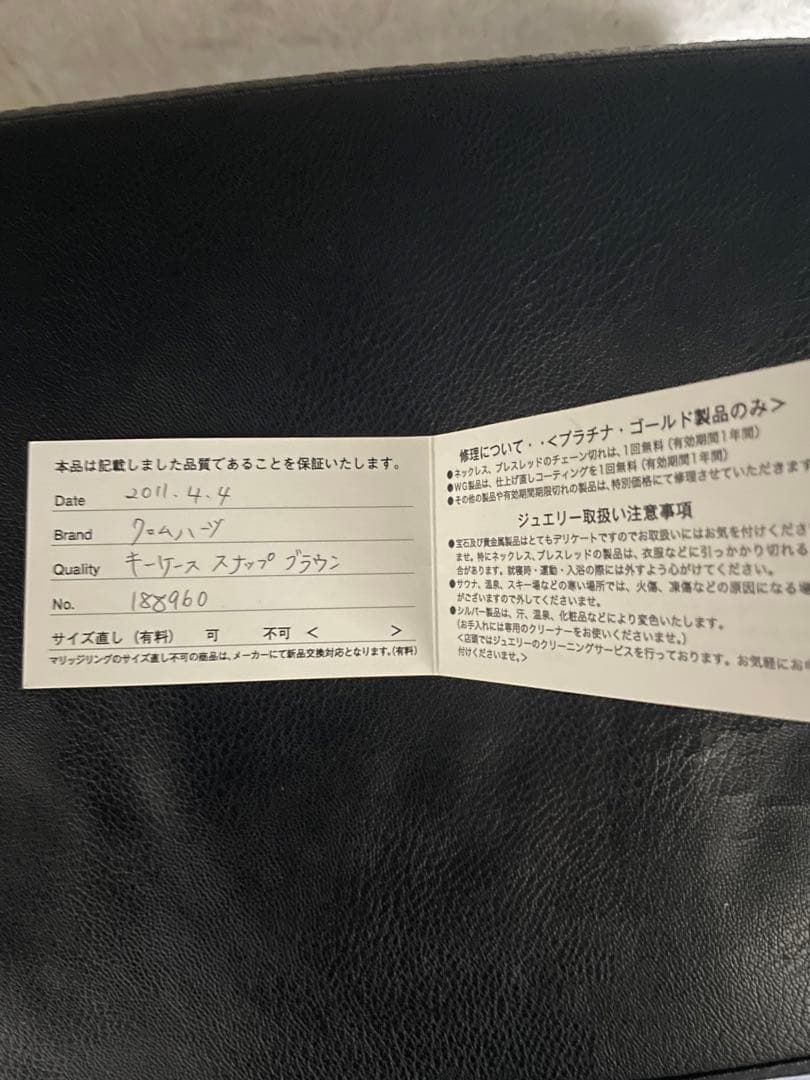 本品は記載しました品質であることを保証いたします。
Date 2011.4.4
Brand クロムハーツ
Quality キーケース スナップ ブラウン
No. 188960
サイズ直し（有料） 可 不可＜ ＞
マリッジリングのサイズ直し不可の商品は、メーカーにて新品交換対応となります。（有料）
修理について・・＜プラチナ・ゴールド製品のみ＞
●ネックレス、ブレスレッドのチェーン切れは、1回無料（有効期間1年間）
●WG製品は、仕上げ直しコーティングを1回無料（有効期間1年間）
●その他の製品や有効期間期限切れの製品は、特別価格にて修理させていただきます
ジュエリー取扱い注意事項
●宝石及び貴金属製品はとてもデリケートですのでお取扱いにはお気を付けくださ
ませ。特にネックレス、ブレスレッドの製品は、衣服などに引っかかり切れる
合があります。就寝時・運動・入浴の際には外すよう心がけてください。
●サウナ、温泉、スキー場などの寒い場所では、火傷、凍傷などの原因になる場
がございますので外してくださいませ。
●シルバー製品は、汗、温泉、化粧品などにより変色いたします。
（お手入れには専用のクリーナーをお使いくださいませ。）
＜店頭ではジュエリーのクリーニングサービスを行っております。お気軽にお
付けくださいませ。＞